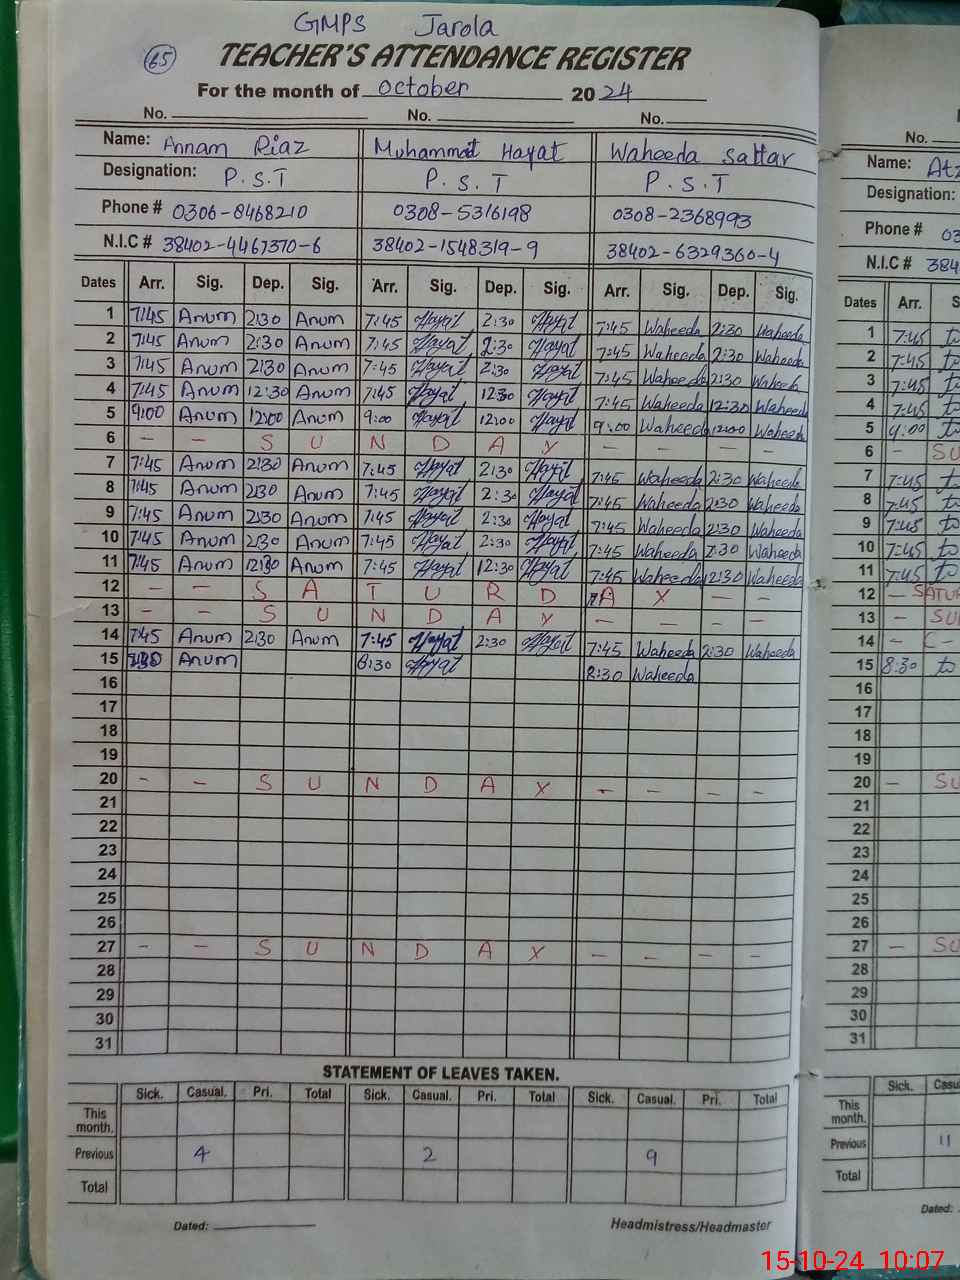 GMPS Jarola
65 TEACHER'S ATTENDANCE REGISTER
For the month of October 2024
No. No. No.
Name: Annam Riaz Muhammad Hayat Waheeda Sattar
Designation: P.S.T P.S.T P.S.T
Phone # 0306-8468210 0308-5316198 0308-2368993
N.I.C # 38402-4467370-6 38402-1548319-9 38402-6329360-4
Dates Arr. Sig. Dep. Sig. Arr. Sig. Dep. Sig. Arr. Sig. Dep. Sig.
1 7:45 Anum 2:30 Anum 7:45 Hayat 2:30 Hayat 7:45 Waheeda 2:30 Waheeda
2 7:45 Anum 2:30 Anum 7:45 Hayat 2:30 Hayat 7:45 Waheeda 2:30 Waheeda
3 7:45 Anum 2:30 Anum 7:45 Hayat 2:30 Hayat 7:45 Waheeda 2:30 Waheeda
4 7:45 Anum 12:30 Anum 7:45 Hayat 12:30 Hayat 7:45 Waheeda 12:30 Waheeda
5 9:00 Anum 12:00 Anum 9:00 Hayat 12:00 Hayat 9:00 Waheeda 12:00 Waheeda
6 - - S U N D A Y - - - -
7 7:45 Anum 2:30 Anum 7:45 Hayat 2:30 Hayat 7:45 Waheeda 2:30 Waheeda
8 7:45 Anum 2:30 Anum 7:45 Hayat 2:30 Hayat 7:45 Waheeda 2:30 Waheeda
9 7:45 Anum 2:30 Anum 7:45 Hayat 2:30 Hayat 7:45 Waheeda 2:30 Waheeda
10 7:45 Anum 2:30 Anum 7:45 Hayat 2:30 Hayat 7:45 Waheeda 2:30 Waheeda
11 7:45 Anum 12:30 Anum 7:45 Hayat 12:30 Hayat 7:45 Waheeda 12:30 Waheeda
12 - - S A T U R D A Y - -
13 - - S U N D A Y - - - -
14 7:45 Anum 2:30 Anum 7:45 Hayat 2:30 Hayat 7:45 Waheeda 2:30 Waheeda
15 Anum 8:30 Hayat 8:30 Waheeda
16
17
18
19
20 - - S U N D A Y - - - -
21
22
23
24
25
26
27 - - S U N D A Y - - - -
28
29
30
31
STATEMENT OF LEAVES TAKEN.
Sick. Casual. Pri. Total Sick. Casual. Pri. Total Sick. Casual. Pri. Total
This month.
Previous 4 2 9
Total
Dated: Headmistress/Headmaster
No.
Name:
Designation:
Phone # 03
N.I.C # 384
Dates Arr.
1 7:45
2 7:45
3 7:45
4 7:45
5 9:00
6 - SU
7 7:45
8 7:45
9 7:45
10 7:45
11 7:45
12 - SATUR
13 - SU
14 - C-
15 8:30
16
17
18
19
20 - SU
21
22
23
24
25
26
27 - SU
28
29
30
31
Sick.
This month.
Previous 11
Total
Dated:
15-10-24 10:07